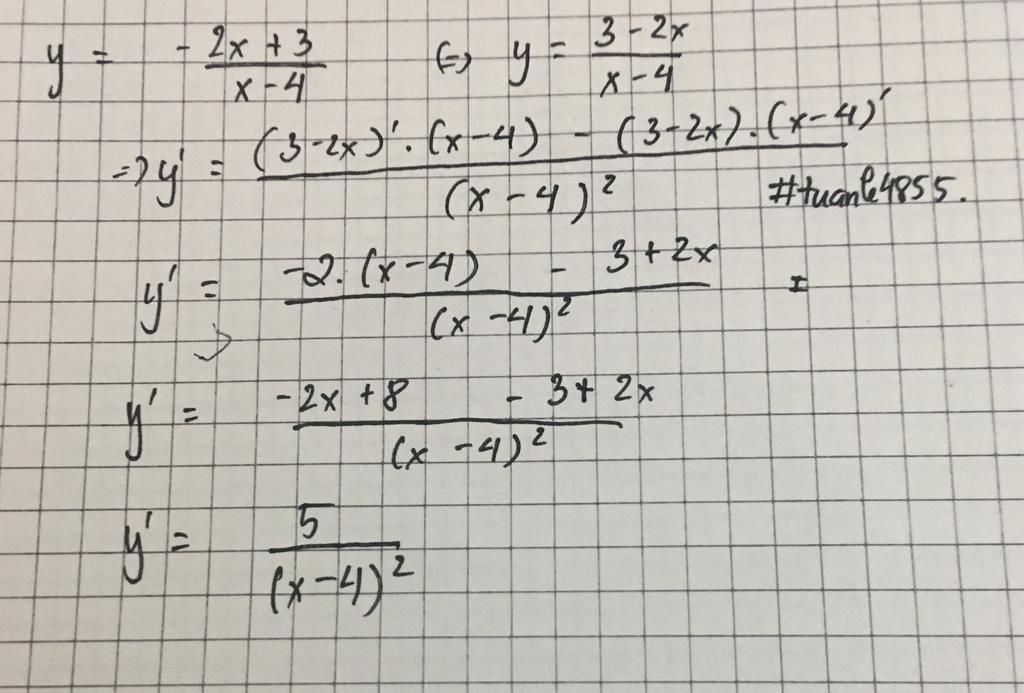 y = -(2x + 3)/(x - 4) <=> y = (3 - 2x)/(x - 4)
=> y' = ((3 - 2x)' . (x - 4) - (3 - 2x) . (x - 4)')/(x - 4)²
#tuanle4855.
y' = (-2. (x - 4) - 3 + 2x)/(x - 4)² =
y' = (-2x + 8 - 3 + 2x)/(x - 4)²
y' = 5/(x - 4)²